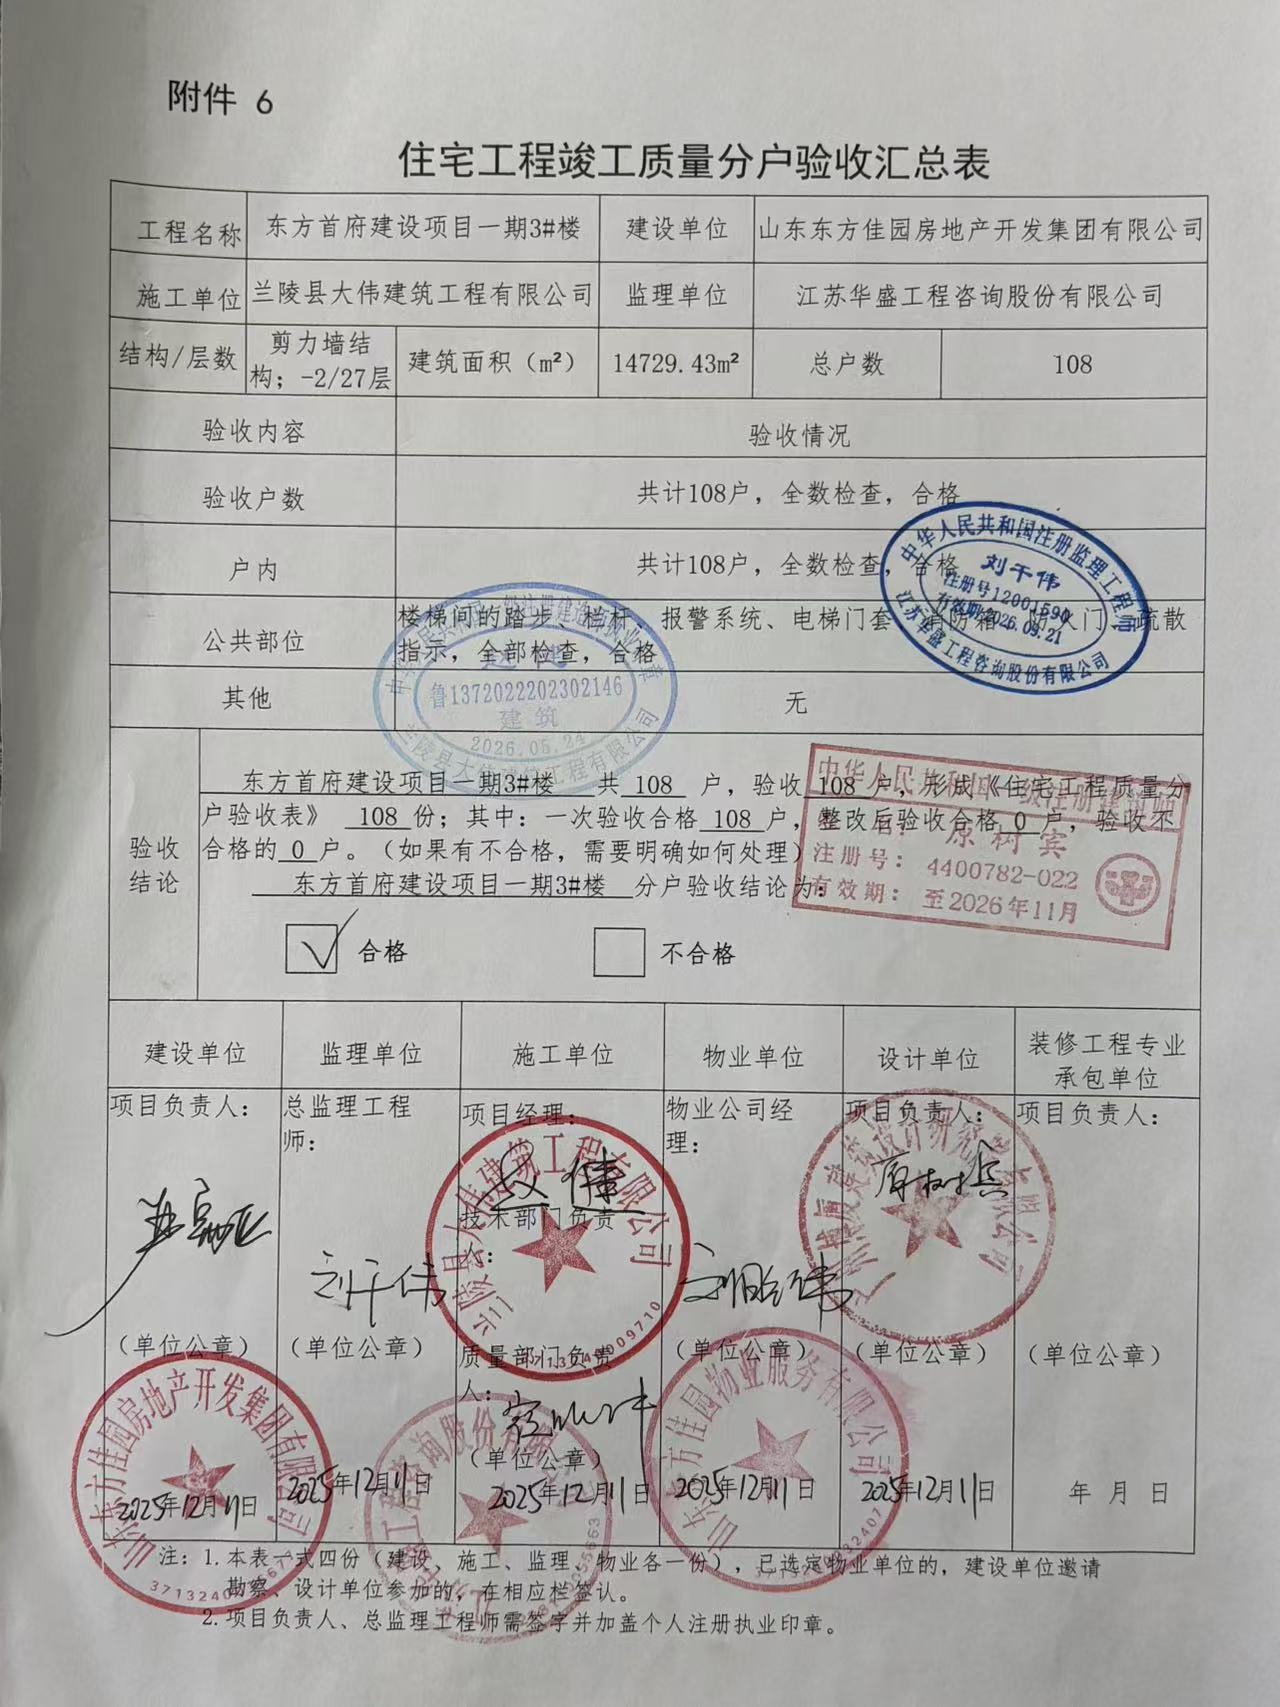 附件 6
住宅工程竣工质量分户验收汇总表
工程名称 东方首府建设项目一期3#楼 建设单位 山东东方佳园房地产开发集团有限公司
施工单位 兰陵县大伟建筑工程有限公司 监理单位 江苏华盛工程咨询股份有限公司
结构/层数 剪力墙结构；-2/27层 建筑面积（m²） 14729.43m² 总户数 108
验收内容 验收情况
验收户数 共计108户，全数检查，合格
户内 共计108户，全数检查，合格
公共部位 楼梯间的踏步、栏杆、报警系统、电梯门套、消防箱、防火门、疏散
指示，全部检查，合格
其他 无
中华人民共和国注册监理工程师
刘干伟
注册号12001590
有效期2026.09.21
江苏华盛工程咨询股份有限公司
鲁1372022202302146
建筑
2026.05.24
兰陵县大伟建筑工程有限公司
验收结论
东方首府建设项目一期3#楼 共 108 户，验收 108 户，形成《住宅工程质量分
户验收表》 108 份；其中：一次验收合格 108 户，整改后验收合格 0 户，验收不
合格的 0 户。（如果有不合格，需要明确如何处理）
东方首府建设项目一期3#楼 分户验收结论为：
合格 不合格
中华人民共和国一级注册建筑师
原树宾
注册号：4400782-022
有效期：至2026年11月
建设单位 监理单位 施工单位 物业单位 设计单位 装修工程专业
承包单位
项目负责人： 总监理工程
师： 项目经理： 物业公司经
理： 项目负责人： 项目负责人：
技术部门负责
刘干伟
（单位公章） （单位公章） 质量部门负责
人： （单位公章） （单位公章） （单位公章）
（单位公章）
2025年12月11日 2025年12月11日 2025年12月11日 2025年12月11日 2025年12月11日 年 月 日
山东东方佳园房地产开发集团有限公司
注：1.本表一式四份（建设、施工、监理、物业各一份），已选定物业单位的，建设单位邀请
勘察、设计单位参加的，在相应栏签认。
2.项目负责人、总监理工程师需签字并加盖个人注册执业印章。